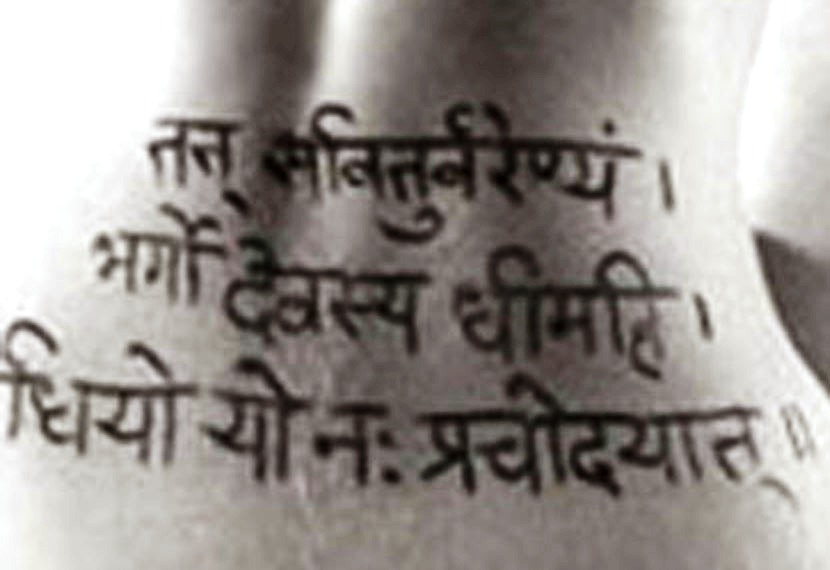 तत् सवितुर्वरेण्यं ।
भर्गो देवस्य धीमहि ।
धियो यो नः प्रचोदयात् ॥